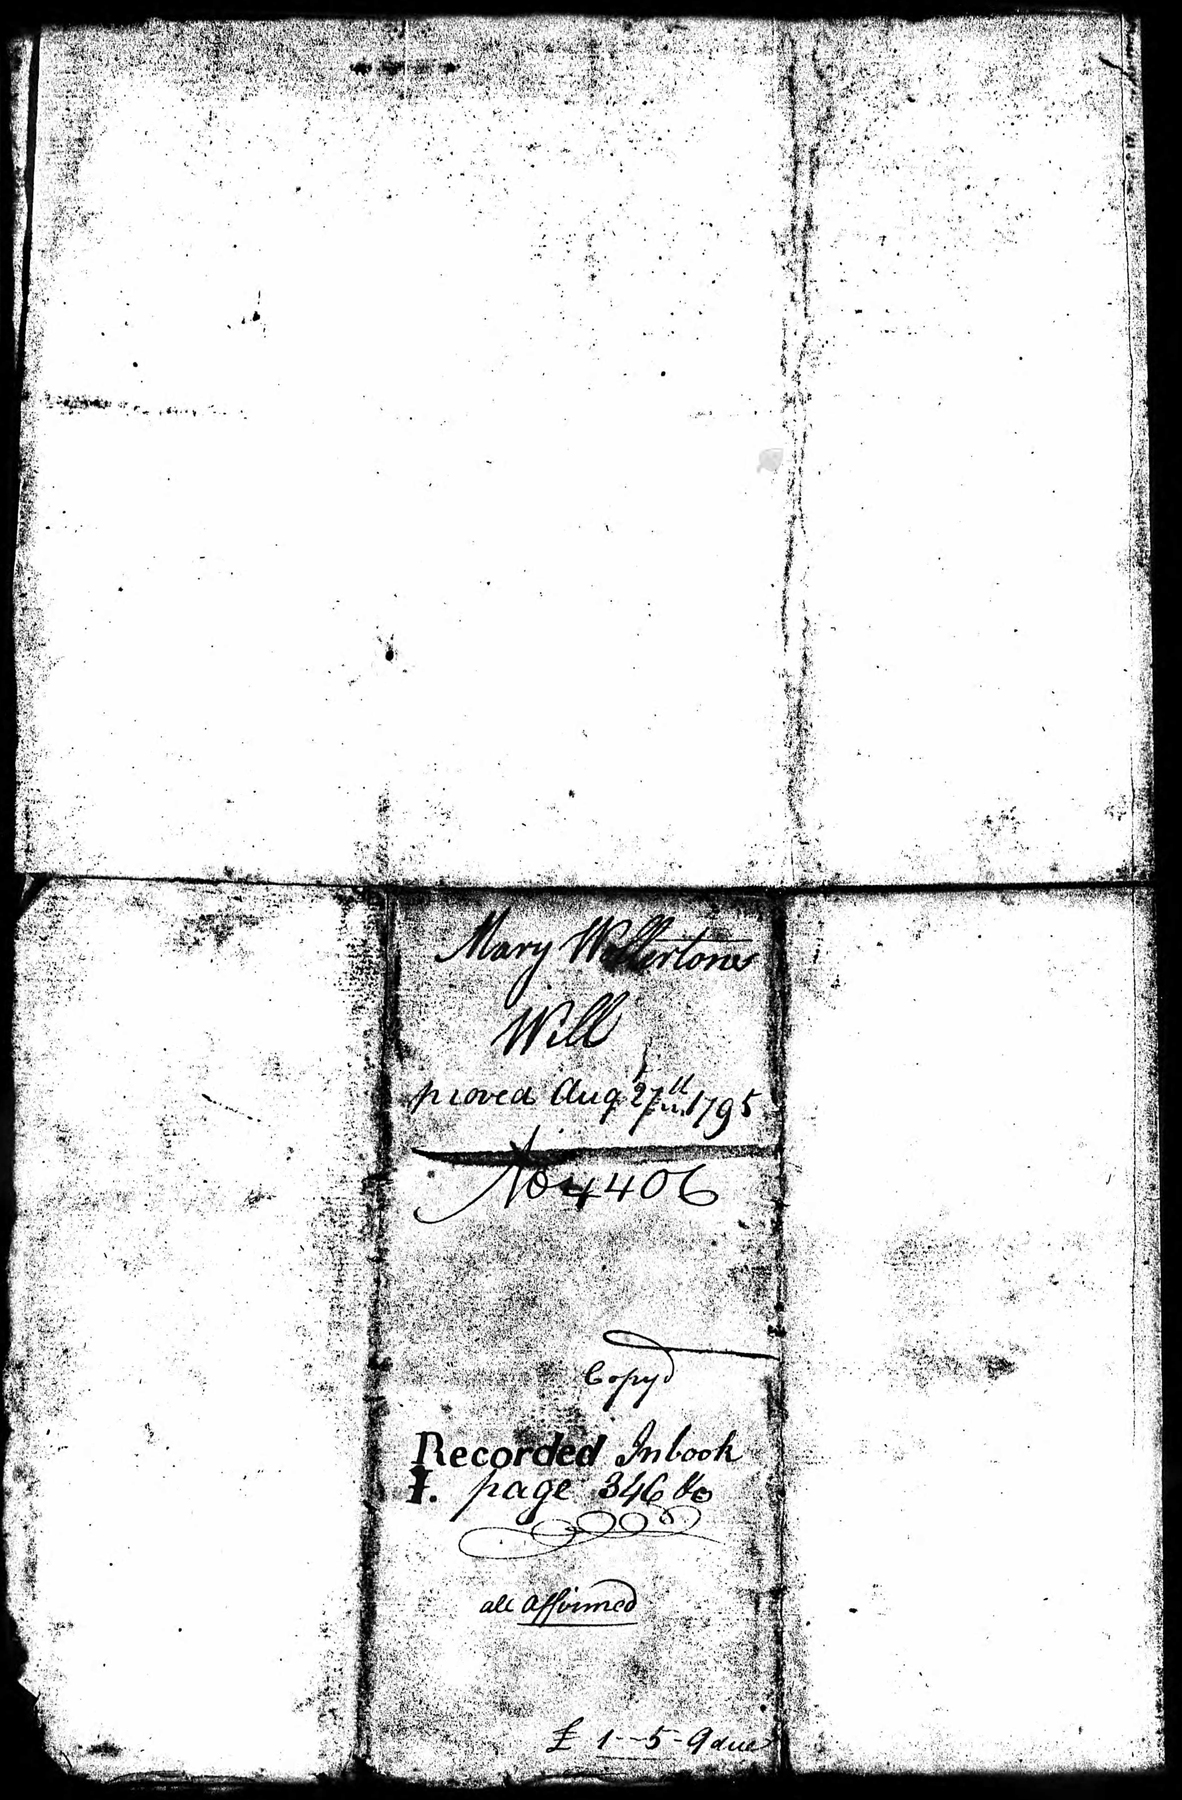 Mary Wollertons
Will
proved Aug 27th 1795
No 4406
Copyd
Recorded In book
I. page 346 &c
all affirmed
£ 1--5-9 due